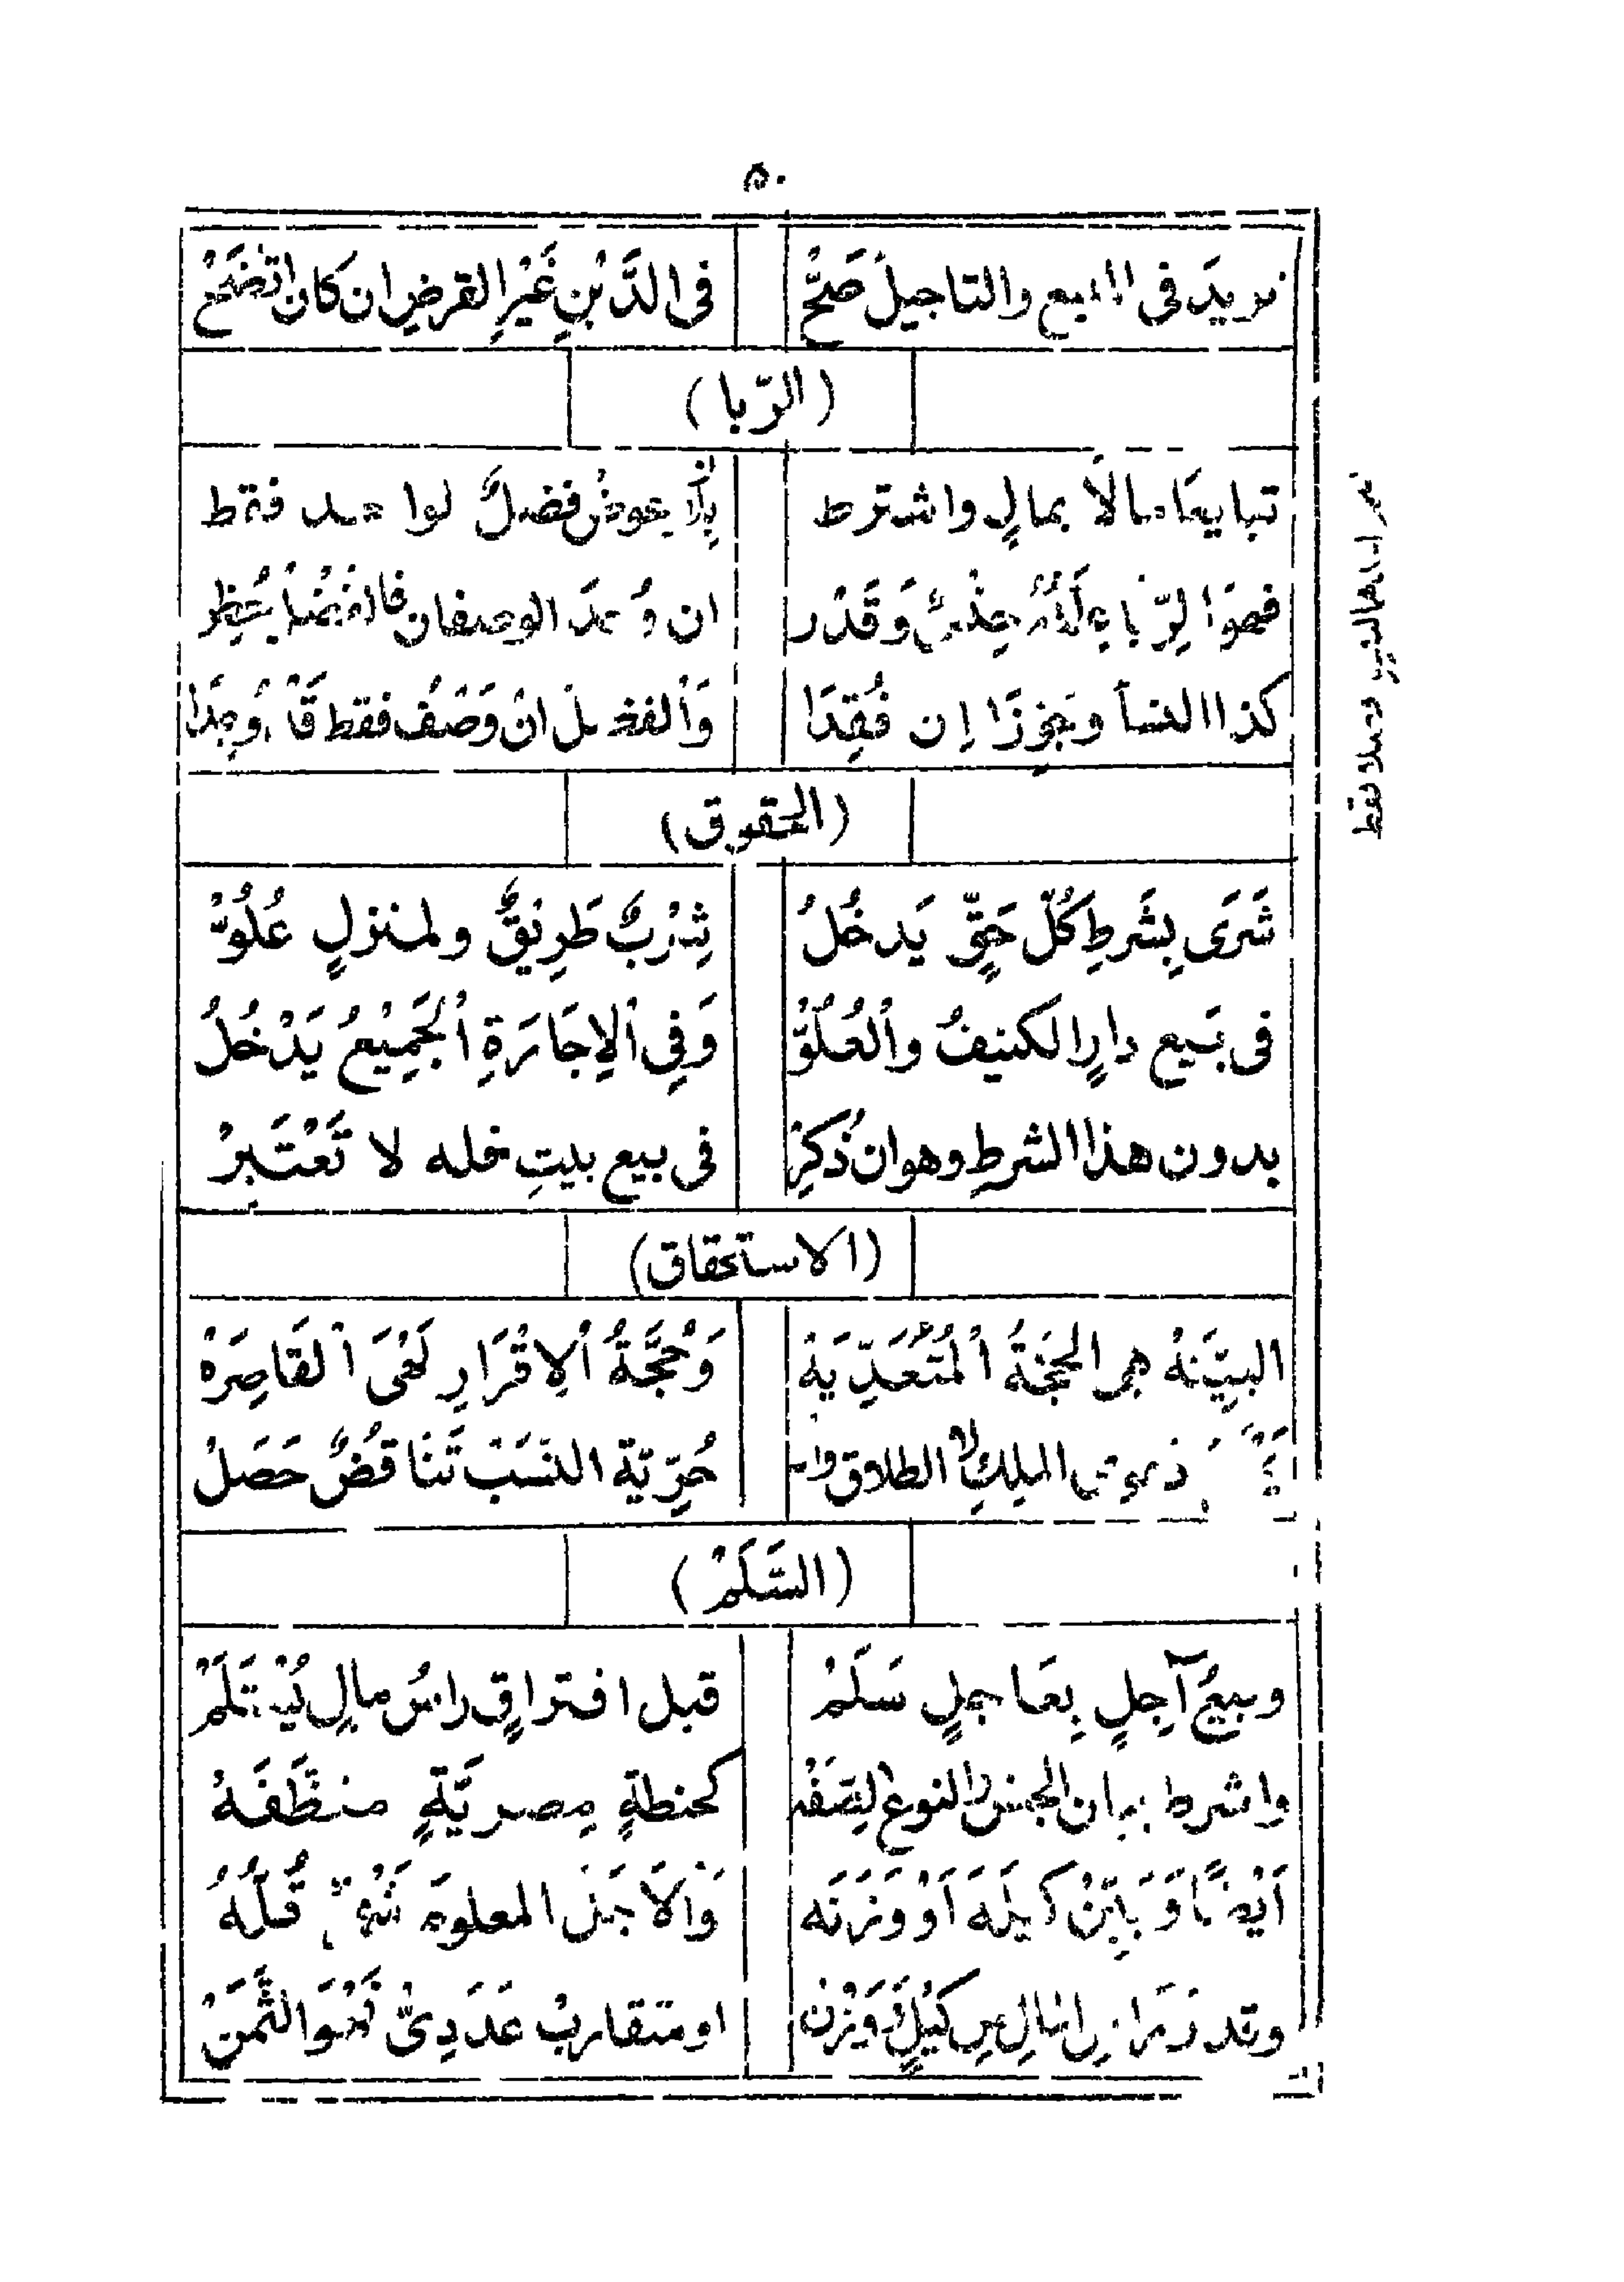 ٥٠
نزيدَ فى المبيع والتاجيلُ صَحّْ فى الدَّيْنِ غَيْرِ القرضِ ان كان اتضَحْ
(الرّبا)
تبايعَا مالاً بمالٍ واشترط بلا عوضٍ فضلٌ لواحد فقط
فهوَ الرّبا وَقَدْر ان وُجدَ الوصفان
كذا النسأ وَيجوزَا إن فُقِدَا وَالفضلُ انْ وَصْفُ فقط قَدْ وُجِدَا
(الحقوق)
شَرَى بِشَرطِ كُلّ حَقٍّ يَدخُلُ شِرْبٌ طَرِيْقٌ ولمنزلٍ عُلُوّْ
فى بَيع دارٍ الكنيفُ والعُلُوّْ وَفِى الاِجَارَةِ الجَمِيْعُ يَدْخُلُ
بدون هذا الشرطِ وهو ان ذُكِرْ فى بيع بيتِ فله لا تَعْتَبِرْ
(الاستحقاق)
البيّنَهْ هى الحجّةُ المُتَعَدِّيَهْ وَحُجَّةُ الاِقْرَارِ لَهْىَ القَاصِرَهْ
الملكِ لا الطلاق حُرِّيّة النسَبْ تَنَاقُضٌ حَصَلْ
(السَّلَمْ)
وبيعُ آجِلٍ بِعَاجلٍ سَلَمْ قبل افتراقٍ راسُ مالٍ يُسْتَلَمْ
واشرط بيان الجنس والنوع الصّفَهْ كحنطةٍ مِصريَّةٍ منظَّفَهْ
اَيْضًا وَبَيِّنْ كَيلَهَ اَوْ وَزنَه وَالاَجَلَ المعلومَ قُلَّهُ
كَيْلٌ وَوَزْن او متقاربْ عَدَدِىّْ نَحْوَ الثَّمَنْ